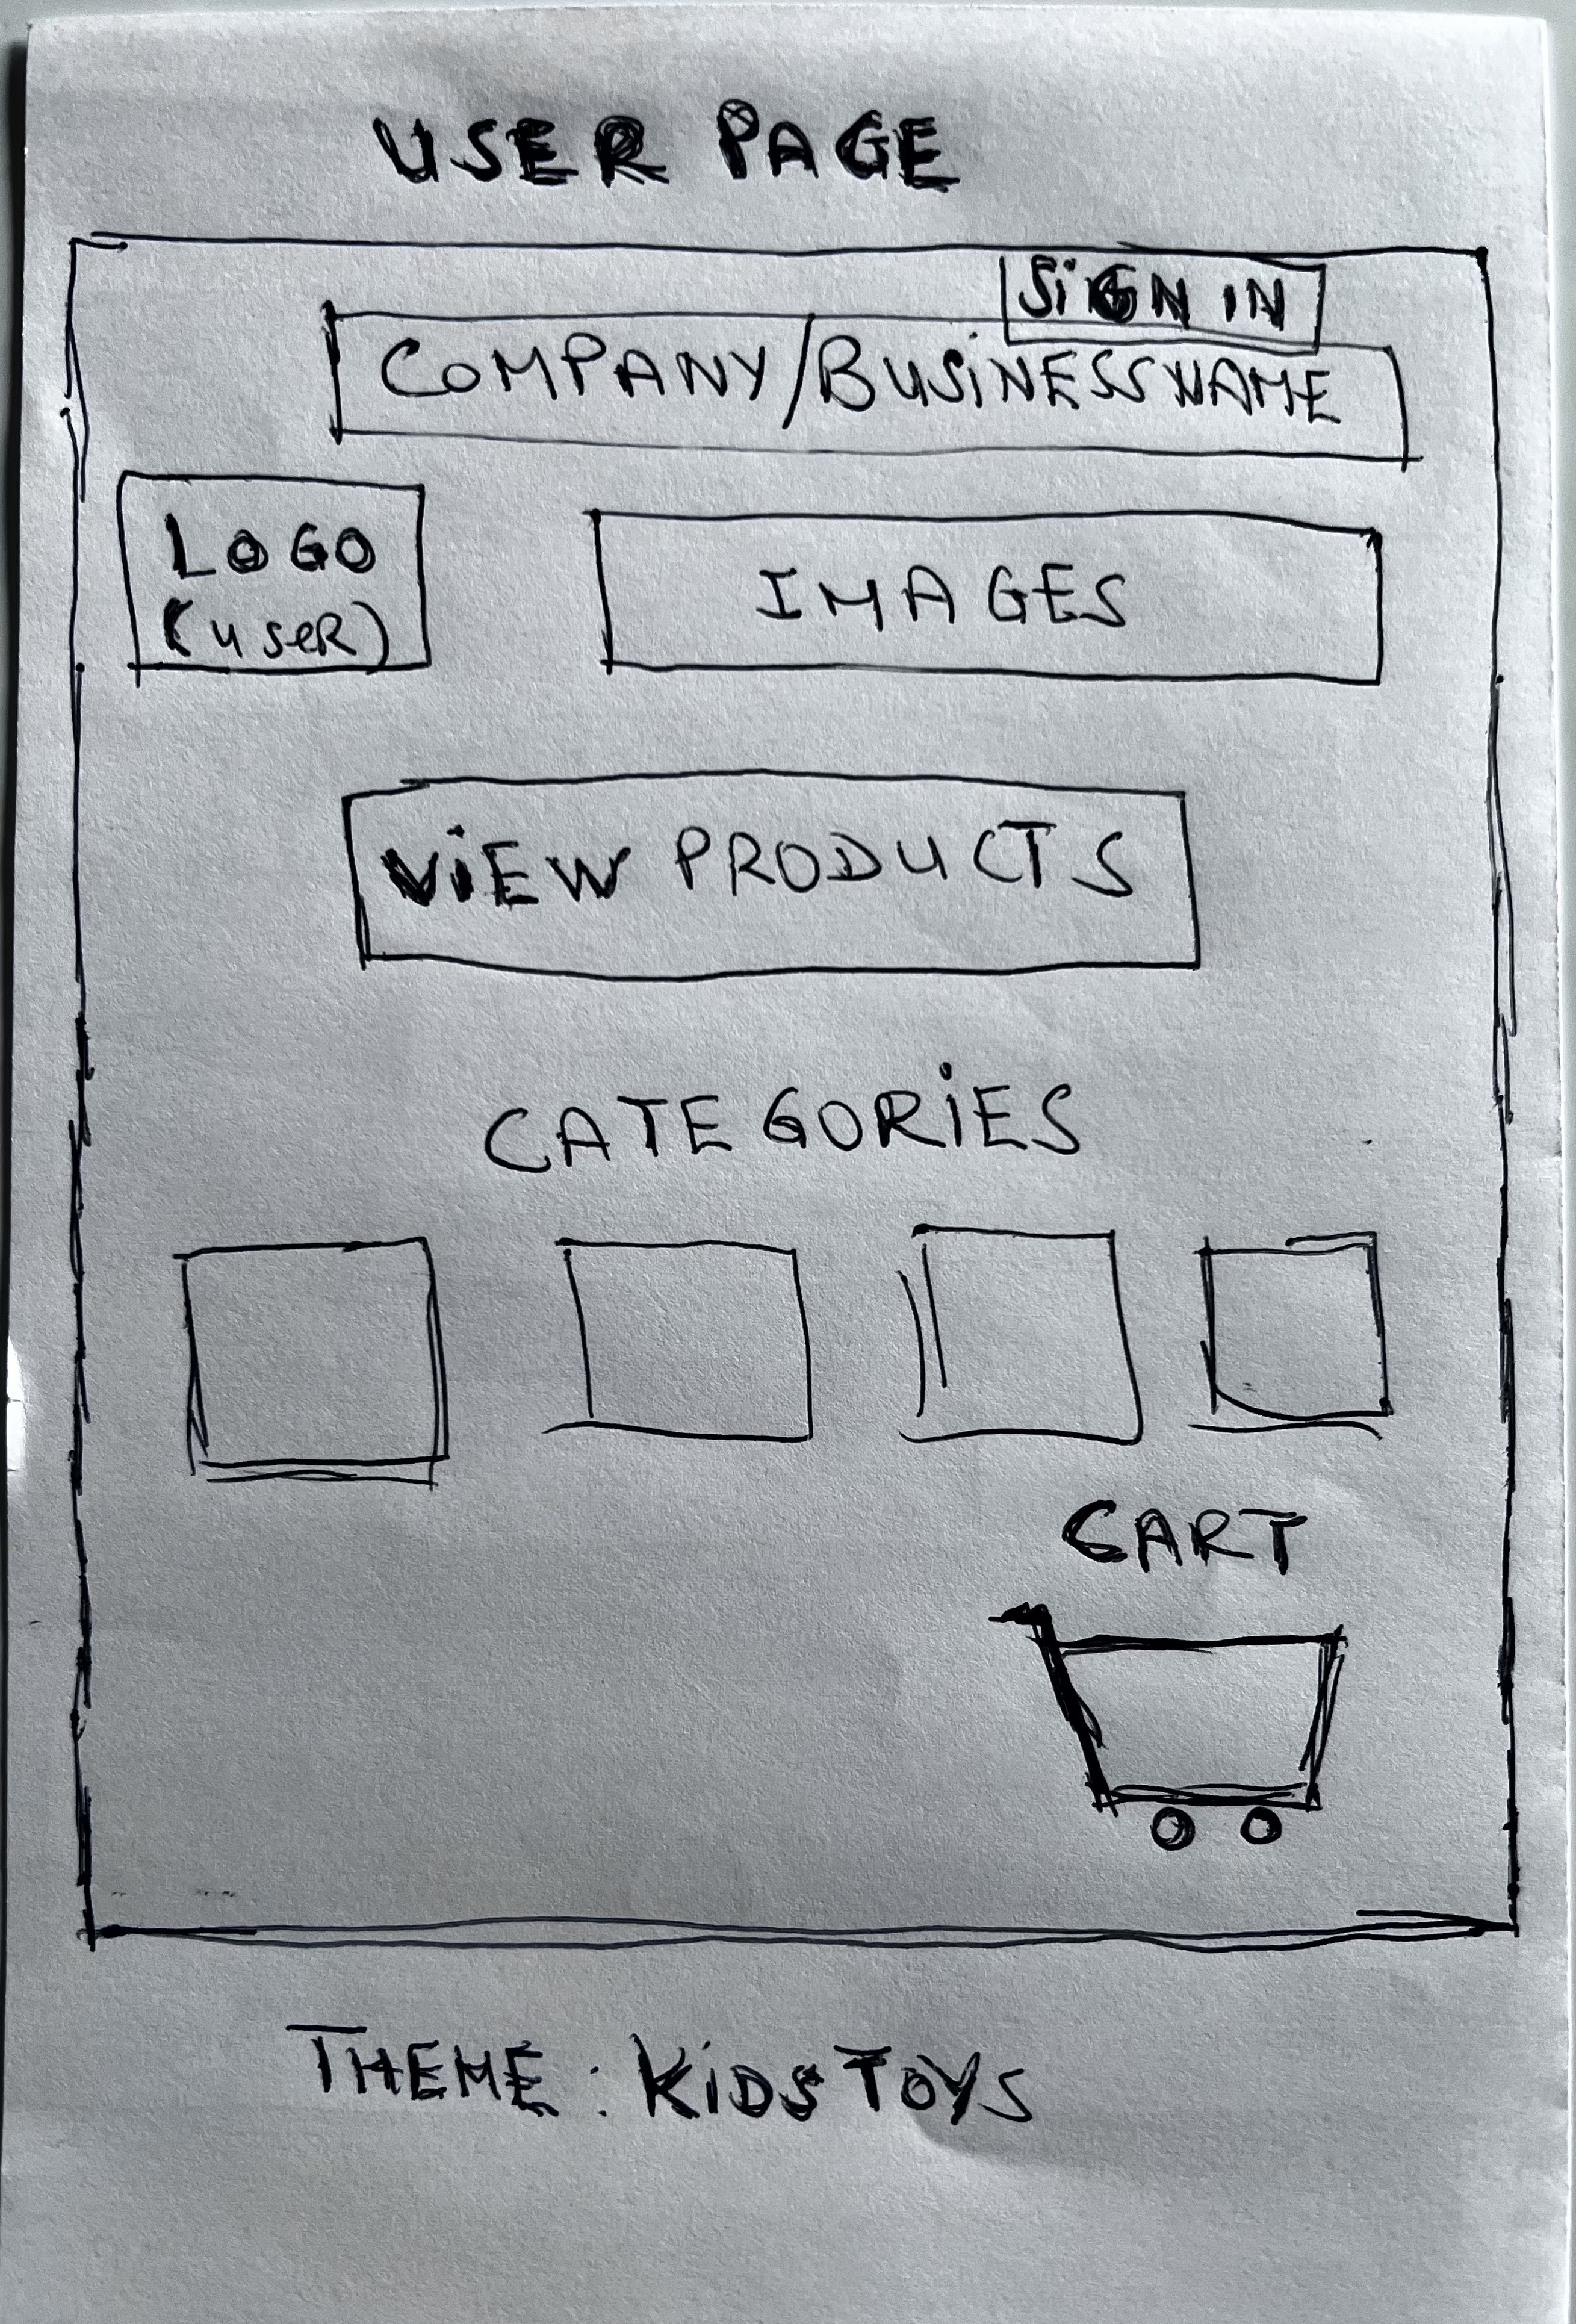 USER PAGE
SiGN IN
COMPANY/BUSiNESSNAME
LOGO
(useR)
IMAGES
ViEW PRODUCTS
CATEGORiES
CART
THEME: KiDS TOYS